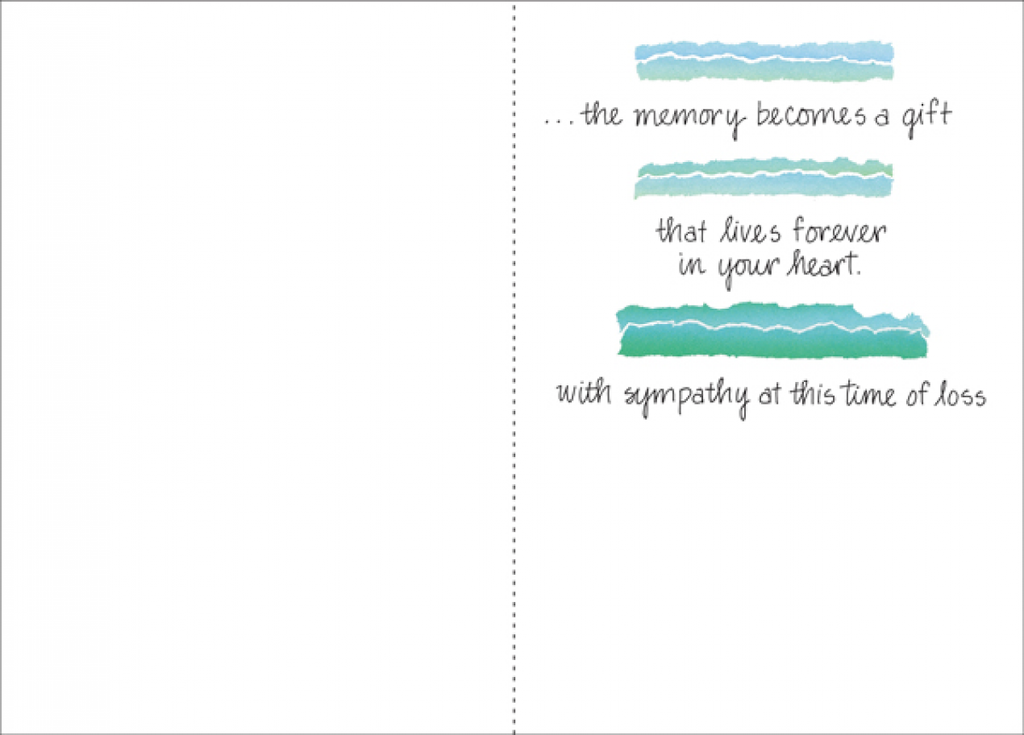 ...the memory becomes a gift
that lives forever
in your heart.
with sympathy at this time of loss